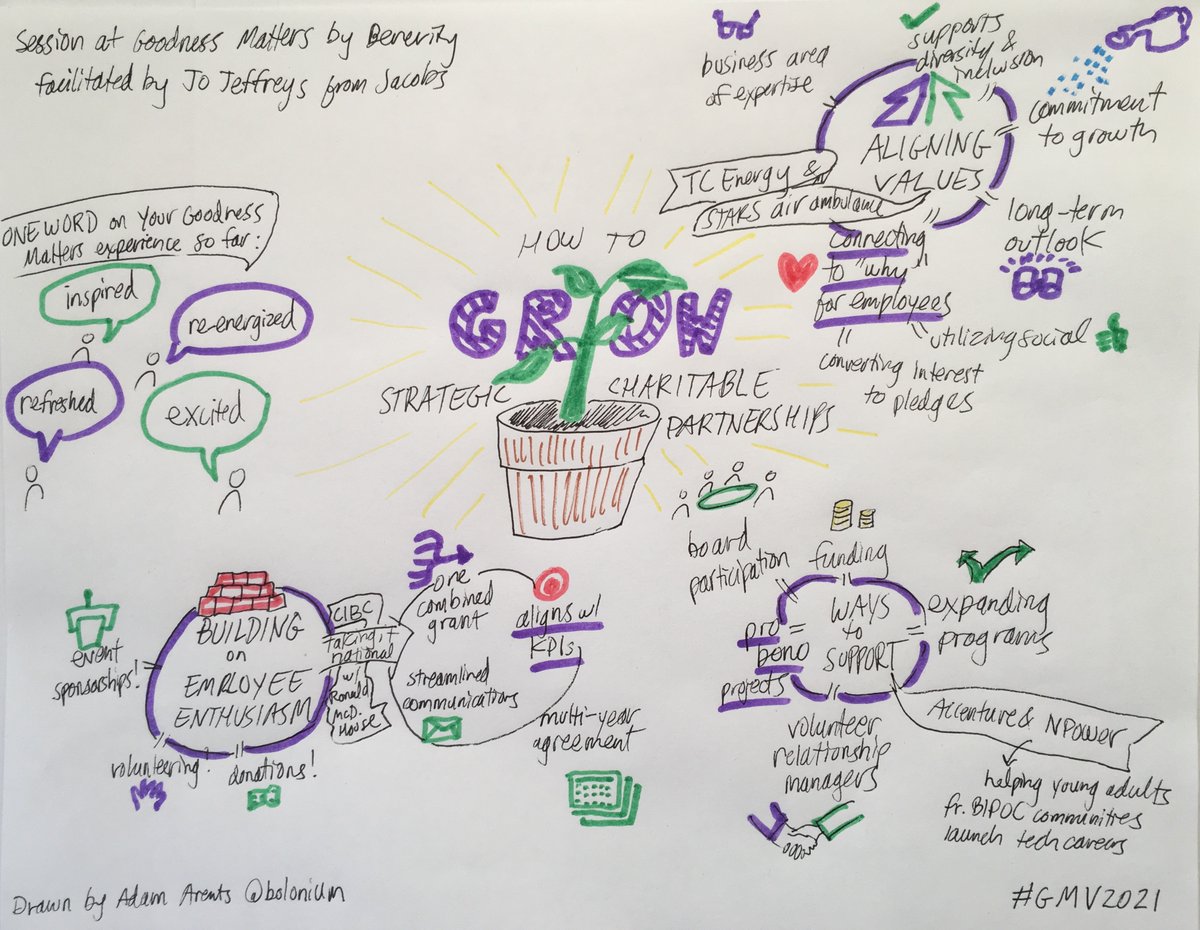 Session at Goodness Matters by Benevity
facilitated by Jo Jeffreys from Jacobs
ONE WORD on your Goodness
Matters experience so far:
inspired
re-energized
refreshed
excited
HOW TO
GROW
STRATEGIC CHARITABLE
PARTNERSHIPS
business area
of expertise
supports
diversity &
inclusion
commitment
to growth
ALIGNING
VALUES
TC Energy &
STARS air ambulance
long-term
outlook
connecting
to "why"
for employees
utilizing social
converting interest
to pledges
BUILDING
on
EMPLOYEE
ENTHUSIASM
event
sponsorships!
volunteering!
donations!
CIBC
taking it
national
w/
Ronald
McD.
House
one
combined
grant
aligns w/
KPIs
streamlined
communications
multi-year
agreement
board
participation
funding
expanding
programs
WAYS
to
SUPPORT
pro
bono
projects
volunteer
relationship
managers
Accenture & NPower
helping young adults
fr. BIPOC communities
launch tech careers
Drawn by Adam Arents @bolonium
#GMV2021